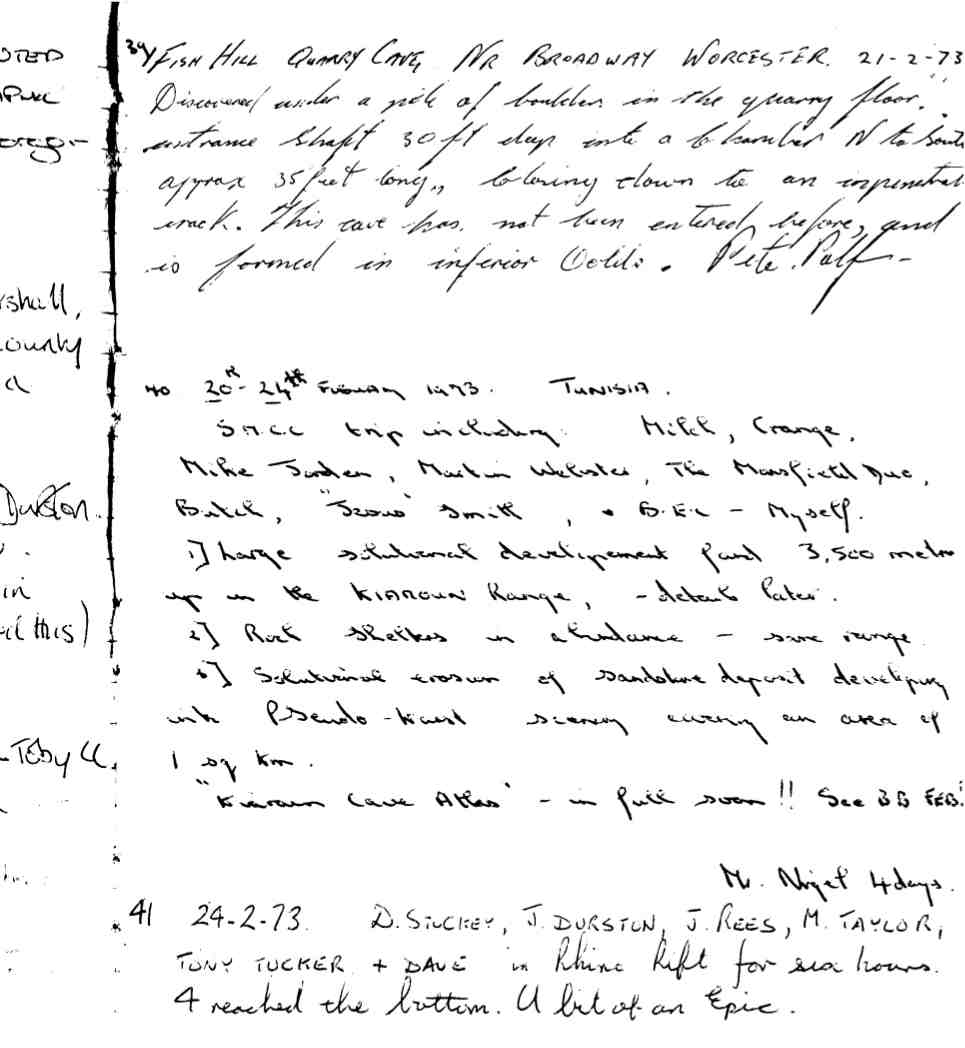 OTED
39/ FISH HILL QUARRY CAVE, NR BROADWAY WORCESTER. 21-2-73
Discovered under a pile of boulders in the quarry floor.
entrance shaft 30 ft deep into a chamber N to South
approx 35 feet long, closing down to an impenetrable
crack. This cave has not been entered before, and
is formed in inferior Oolite. Pete Palf-
rshall,
ounty
a
40 20th - 24th February 1973. TUNISIA.
S.M.C.C trip including: Milch, Grange,
Mike Jorden, Martin Webster, The Mansfield Duo,
Durston.
Butch, " Smith, + B.E.C - Myself.
1] Large solutional developement found 3,500 metres
in
up in the KIAROUN Range, - details later.
il this)
2] Rock shelters in abundance - same range.
3] Solutional erosion of sandstone deposit developing
into Pseudo-karst scenery covering an area of
- Toby
1 sq km.
"Kiaroun Cave Atlas" - in full soon!! See BB FEB!
Mr. Nigel 4 days.
41 24-2-73. D. STUCKEY, J. DURSTON, J. REES, M. TAYLOR,
TONY TUCKER + DAVE in Rhino Rift for six hours.
4 reached the bottom. A bit of an Epic.